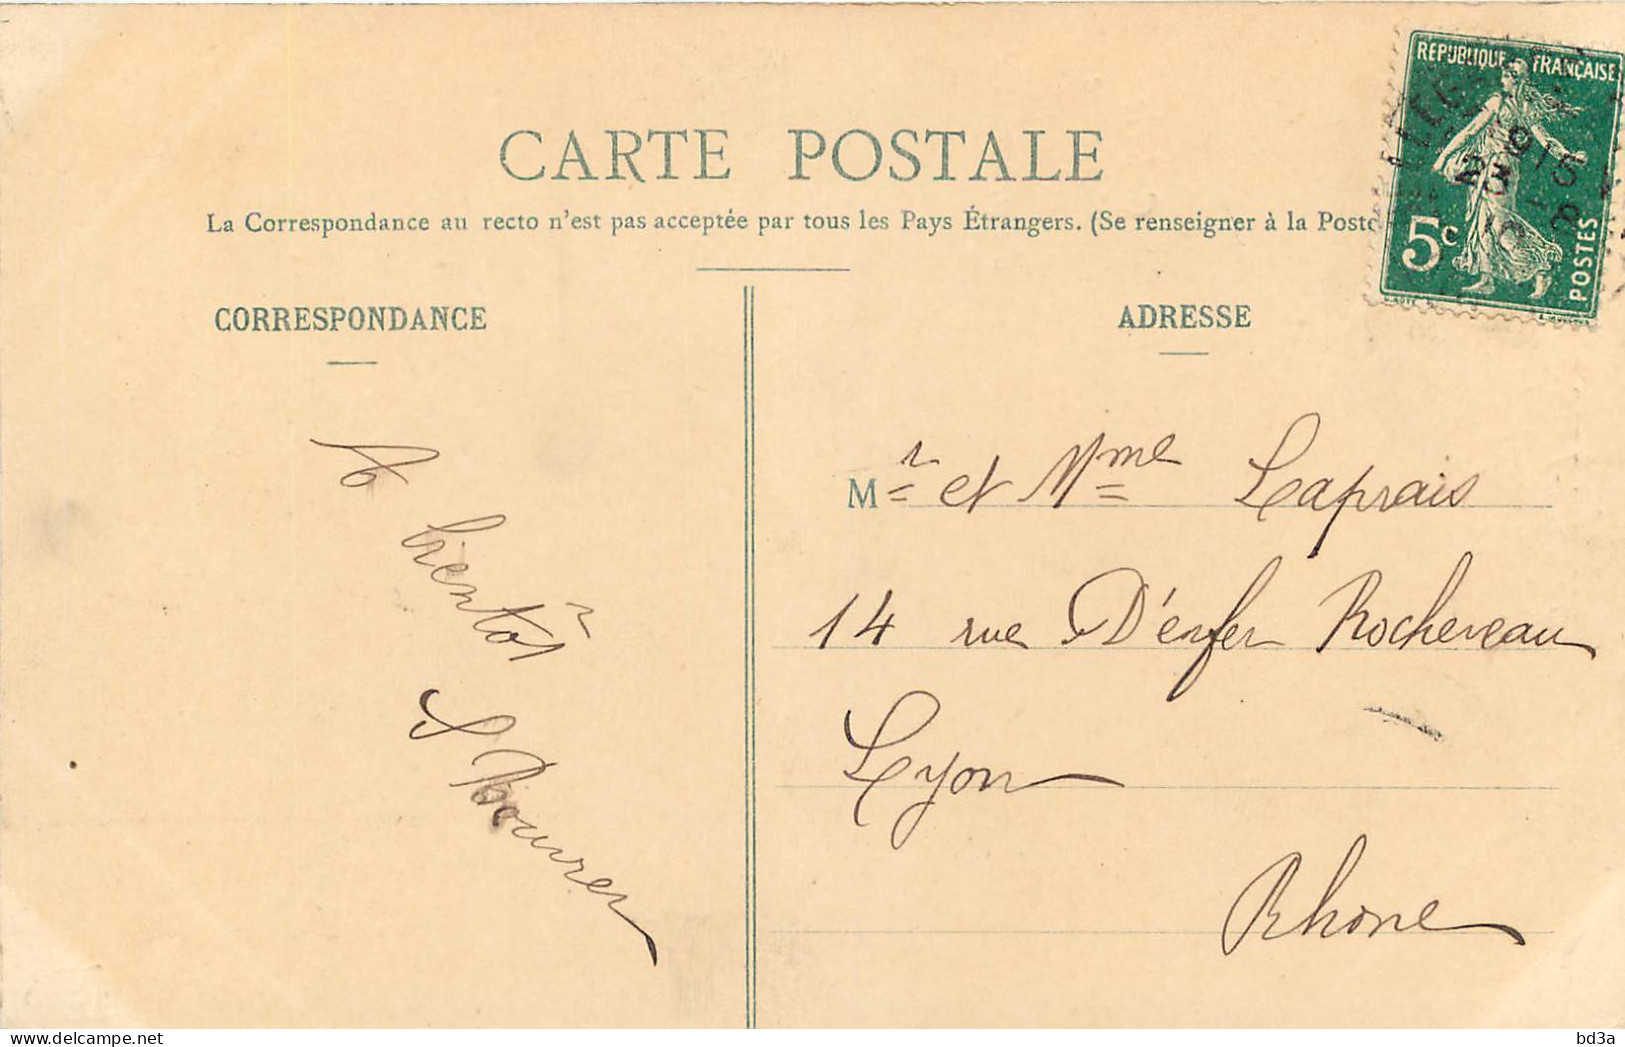 CARTE POSTALE
La Correspondance au recto n'est pas acceptée par tous les Pays Étrangers. (Se renseigner à la Poste
REPUBLIQUE FRANÇAISE
5c
POSTES
CORRESPONDANCE
ADRESSE
A
bientôt
Mr et Mme Laprais
14 rue D'enfer Rochereau
Lyon
Rhone
delcampe.net
bd3a